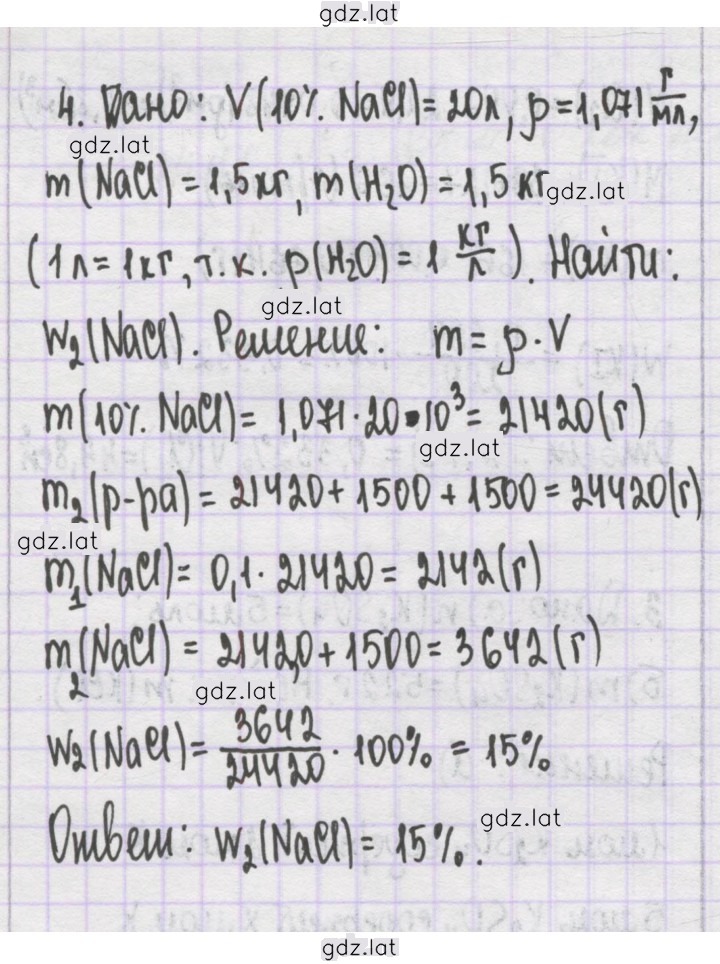 gdz.lat
4. Дано: V(10% NaCl) = 20л, ρ = 1,071 г/мл,
gdz.lat
m(NaCl) = 1,5кг, m(H₂O) = 1,5 кг
gdz.lat
(1л = 1кг, т.к. ρ(H₂O) = 1 кг/л). Найти:
gdz.lat
w₂(NaCl). Решение: m = ρ · V
m(10% NaCl) = 1,071 · 20 · 10³ = 21420 (г)
gdz.lat
m₂(р-ра) = 21420 + 1500 + 1500 = 24420 (г)
gdz.lat
m₁(NaCl) = 0,1 · 21420 = 2142 (г)
m₂(NaCl) = 2142,0 + 1500 = 3642 (г)
gdz.lat
w₂(NaCl) = 3642/24420 · 100% = 15%
gdz.lat
Ответ: w₂(NaCl) = 15%.
gdz.lat